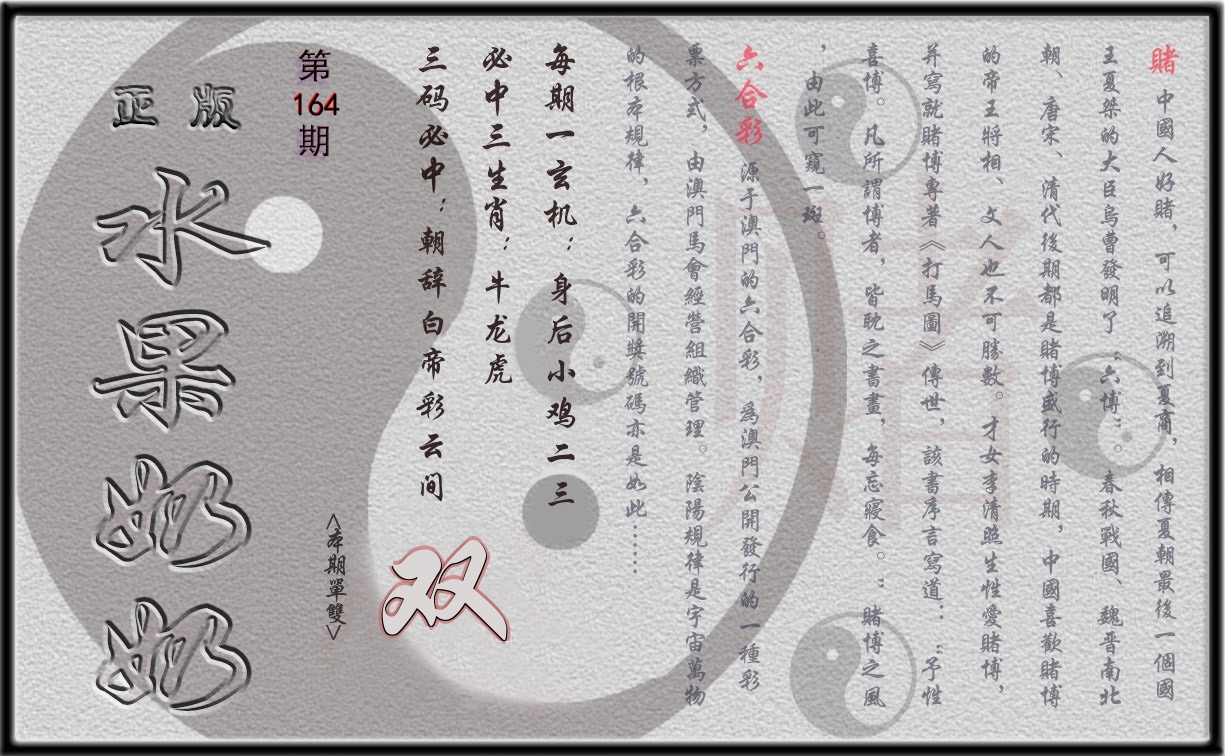 賭 中國人好賭，可以追溯到夏商，相傳夏朝最後一個國
王夏桀的大臣烏曹發明了“六博”。春秋戰國、魏晋南北
朝、唐宋、清代後期都是賭博盛行的時期，中國喜歡賭博
的帝王將相、文人也不可勝數。才女李清照生性愛賭博，
并寫就賭博專著《打馬圖》傳世，該書序言寫道：“予性
喜博。凡所謂博者，皆耽之書畫，每忘寢食。：賭博之風
，由此可窺一斑。
六合彩 源于澳門的六合彩，爲澳門公開發行的一種彩
票方式，由澳門馬會經營組織管理。陰陽規律是宇宙萬物
的根本規律，六合彩的開獎號碼亦是如此……
每期一玄机：身后小鸡二三
必中三生肖：牛龙虎
三码必中：朝辞白帝彩云间
双
<本期單雙>
第
164
期
正版
水果奶奶
賭